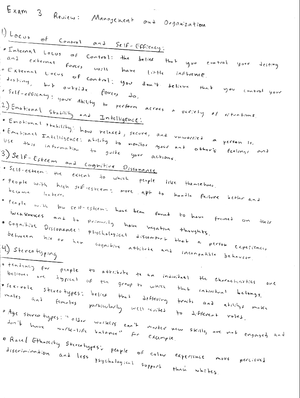 Exam 3 Review: Management and Organization
1) Locus of Control and Self-Efficacy:
• Internal Locus of Control: the belief that you control your destiny
and external forces will have little influence
• External Locus of Control: you don't believe that you control your
destiny, but outside forces do.
• Self-efficacy: your ability to perform across a variety of situations
2) Emotional Stability and Intelligence:
• Emotional stability: how relaxed, secure, and unworried a person is.
• Emotional Intelligence: ability to monitor yours and others feelings and
use this information to guide your actions.
3) Self-Esteem and Cognitive Dissonance
• Self-esteem: the extent to which people like themselves.
• People with high self-esteem: more apt to handle failure better and
become
• People with low self-esteem: have been found to have focused on their
weaknesses and to primarily have negative thoughts.
• Cognitive Dissonance: Psychological discomfort that a person experiences
between his or her cognitive attitude and incompatible behavior
4) Stereotyping
• tendency for people to attribute to an individual the characteristics one
believes are typical of the group to which that individual belongs.
• Sex-role stereotypes: belief that differing traits and abilities make
males and females particularly well-suited to different roles.
• Age stereotypes: "older workers can't master new skills, are not engaged and
don't have work-life balance" for example
• Race/Ethnicity Stereotypes: people of color experience more perceived
discrimination and less psychological support than whites.